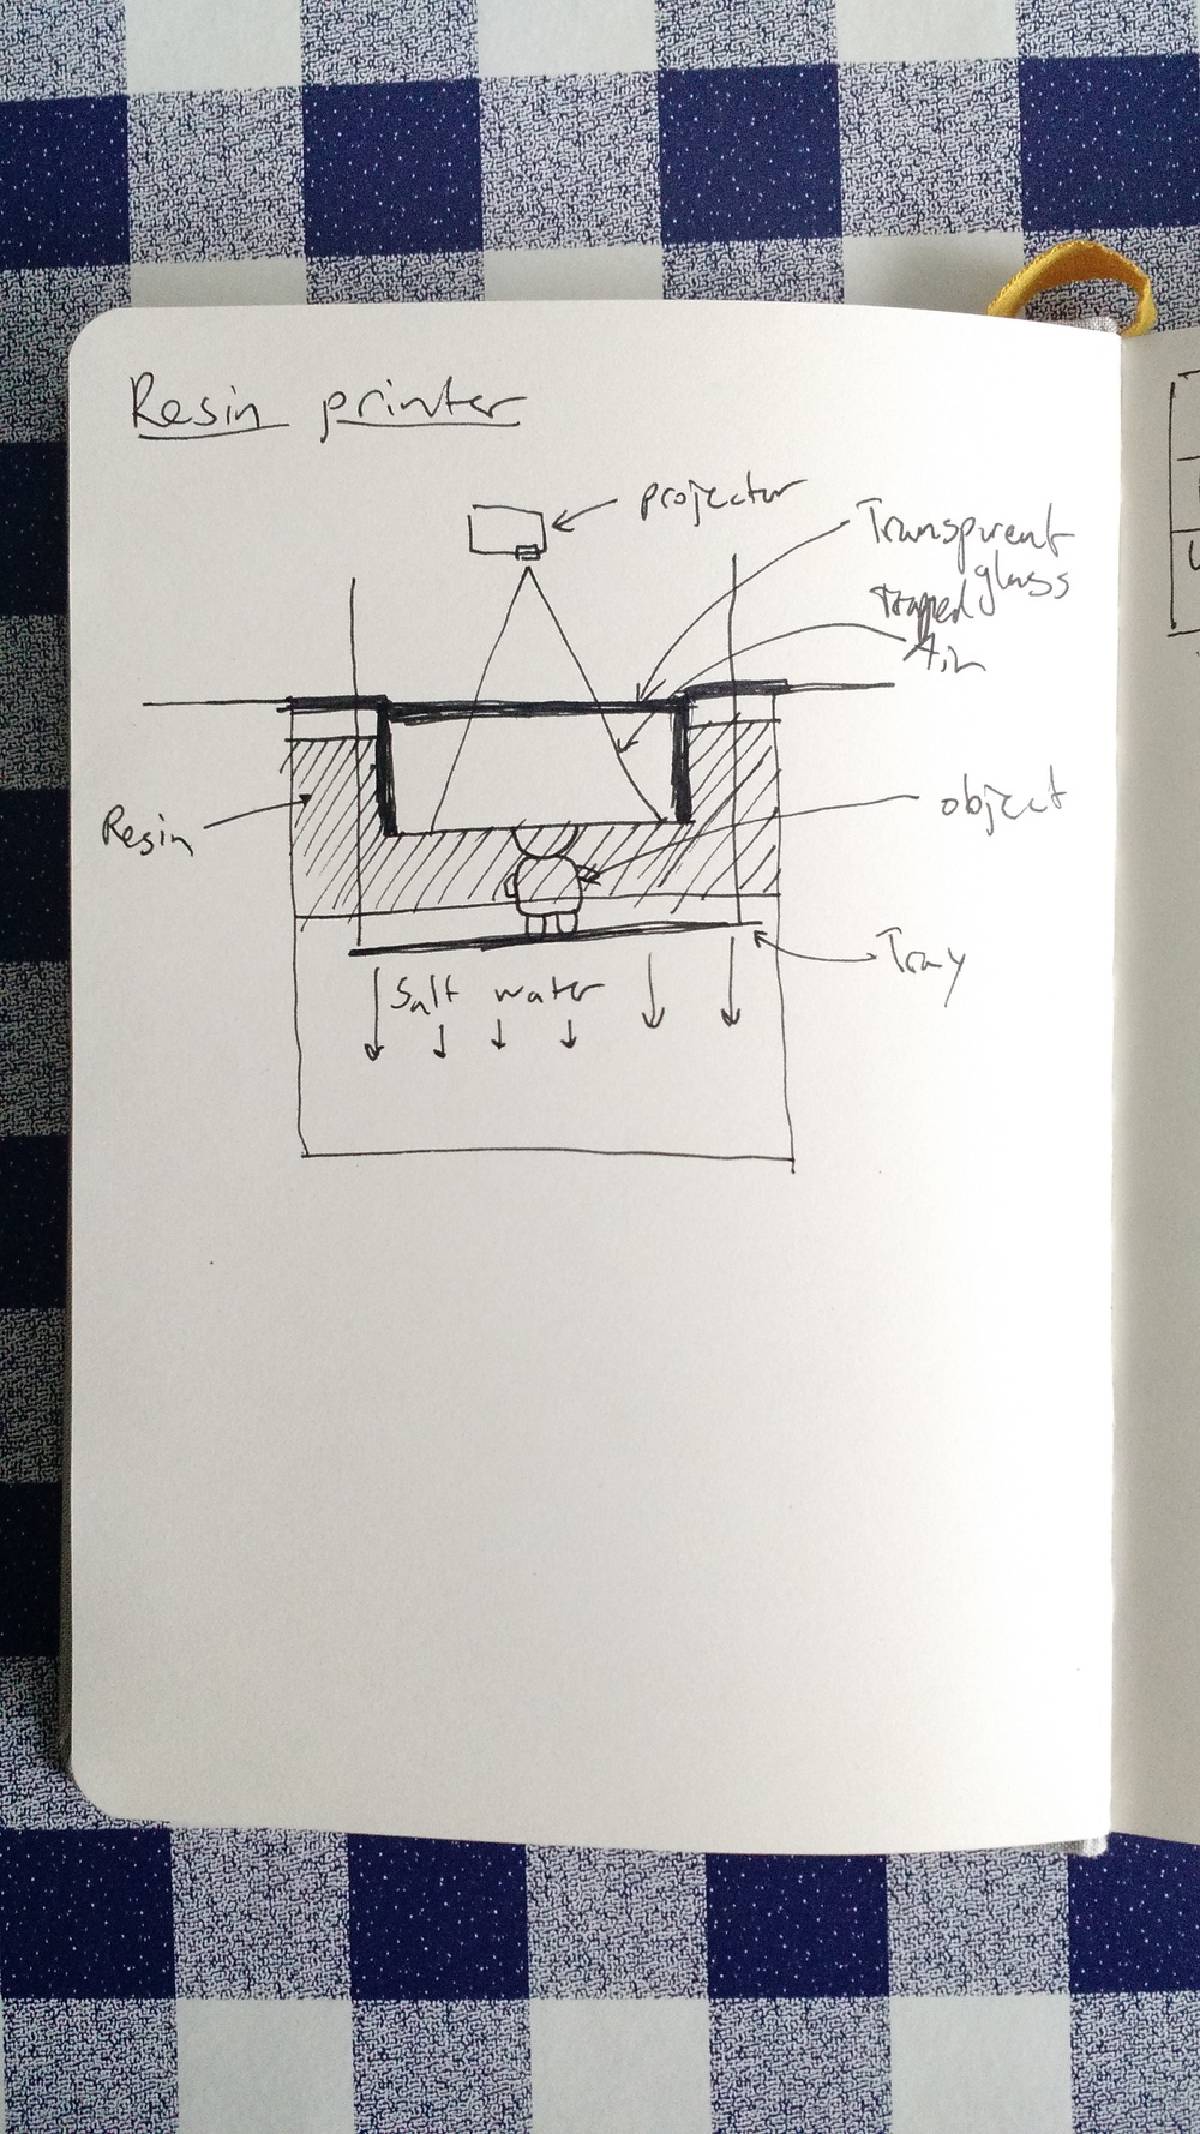 Resin printer
projector
Transparent
glass
Trapped
Air
Resin
object
Tray
Salt water